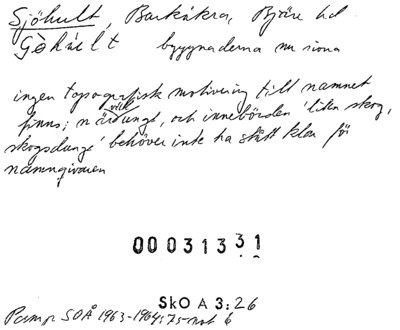 Sjöhult, Barkåkra, Bjäre hd
byggnaderna nu rivna
ingen topografisk motivering till namnet
finns; och innebörden 'liten skog,
skogsdunge' behöver inte ha stått klar för
namngivaren
000313 31
SkO A 3:26
SOÅ 1963-1964:75 not 6